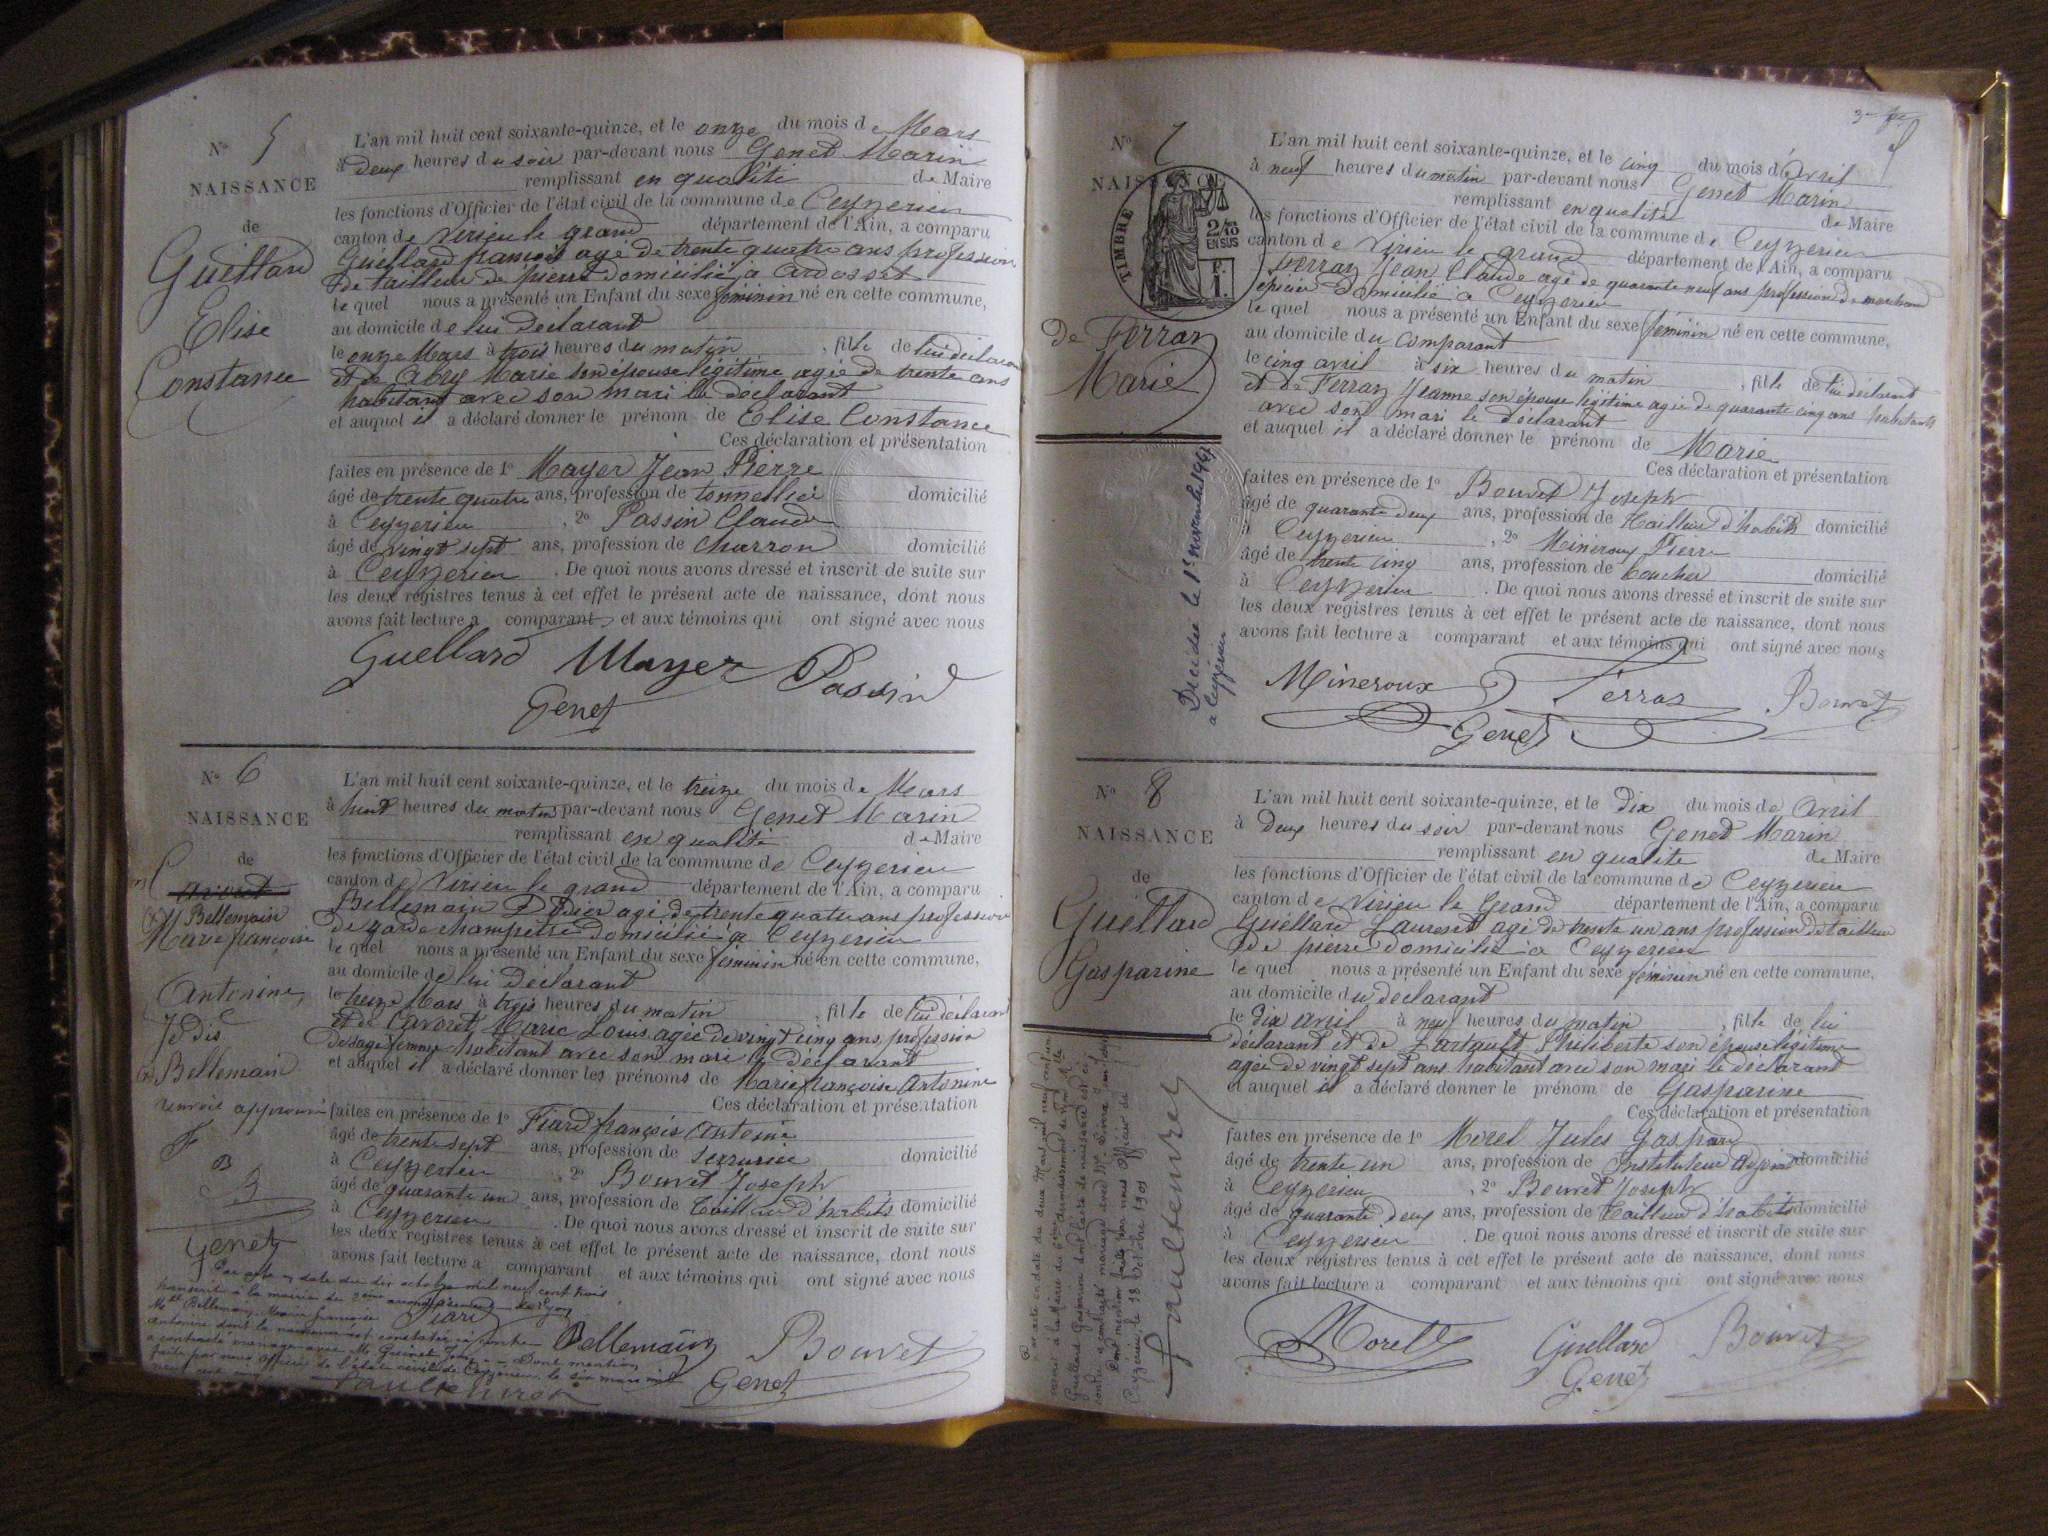 N° 5
NAISSANCE
de
Guellard
Elise
Constance
L'an mil huit cent soixante-quinze, et le onze du mois de Mars
à deux heures du soir par-devant nous Genet Marin
remplissant en qualité de Maire
les fonctions d'Officier de l'état civil de la commune de Ceyzerieu
canton de Virieu le grand département de l'Ain, a comparu
Guellard françois agé de trente quatre ans profession
de tailleur de pierre domicilié à Ardosset
le quel nous a présenté un Enfant du sexe féminin né en cette commune,
au domicile de lui Déclarant
le onze Mars à trois heures du matin, fille de lui déclarant
et de Abry Marie son épouse légitime agée de trente ans
habitant avec son mari le déclarant
et auquel il a déclaré donner le prénom de Elise Constance
Ces déclaration et présentation
faites en présence de 1° Mayer Jean Pierre
âgé de trente quatre ans, profession de tonnellier domicilié
à Ceyzerieu, 2° Passin Claude
âgé de vingt sept ans, profession de charron domicilié
à Ceyzerieu. De quoi nous avons dressé et inscrit de suite sur
les deux registres tenus à cet effet le présent acte de naissance, dont nous
avons fait lecture a comparant et aux témoins qui ont signé avec nous
Guellard Mayer Passin
Genet
N° 6
NAISSANCE
de
Bellemain
Marie françoise
Antonine
Je dis
Bellemain
renvoi approuvé
F
B
B
Genet
L'an mil huit cent soixante-quinze, et le treize du mois de Mars
à huit heures du matin par-devant nous Genet Marin
remplissant en qualité de Maire
les fonctions d'Officier de l'état civil de la commune de Ceyzerieu
canton de Virieu le grand département de l'Ain, a comparu
Bellemain Didier agé de trente quatre ans profession
de garde champêtre domicilié à Ceyzerieu
le quel nous a présenté un Enfant du sexe féminin né en cette commune,
au domicile de lui Déclarant
le treize Mars à trois heures du matin, fille de lui déclarant
et de Cavoret Marie Louis. agée de vingt cinq ans, profession
de sage femme habitant avec son mari le déclarant
et auquel il a déclaré donner les prénoms de Marie françoise Antonine
Ces déclaration et présentation
faites en présence de 1° Fiard françois Antoine
âgé de trente sept ans, profession de serrurier domicilié
à Ceyzerieu, 2° Bouvet Joseph
âgé de quarante un ans, profession de tailleur d'habits domicilié
à Ceyzerieu. De quoi nous avons dressé et inscrit de suite sur
les deux registres tenus à cet effet le présent acte de naissance, dont nous
avons fait lecture a comparant et aux témoins qui ont signé avec nous
Par acte en date du dix octobre mil neuf cent trois
transcrit à la mairie du 2ème arrondissement de Lyon
Melle Bellemain Marie françoise
Antonine dont la naissance est constatée ci contre
a contracté mariage avec Mr Dont mention
faite par nous Officier de l'état civil de Ceyzerieu le six mars mil
Fiard
Bellemain Bouvet
Genet
N° 7
NAISSANCE
TIMBRE
2/10
EN SUS
F.
1.
de Ferraz
Marie
Décédée le 1er novembre 1967
à Ceyzerieu
L'an mil huit cent soixante-quinze, et le cinq du mois d'Avril
à neuf heures du matin par-devant nous Genet Marin
remplissant en qualité de Maire
les fonctions d'Officier de l'état civil de la commune de Ceyzerieu
canton de Virieu le grand département de l'Ain, a comparu
Ferraz Jean Claude agé de quarante neuf ans profession de marchand
épicier domicilié à Ceyzerieu
le quel nous a présenté un Enfant du sexe féminin né en cette commune,
au domicile du comparant
le cinq avril à six heures du matin, fille de lui déclarant
et de Ferraz Jeanne son épouse légitime agée de quarante cinq ans habitant
avec son mari le déclarant
et auquel il a déclaré donner le prénom de Marie
Ces déclaration et présentation
faites en présence de 1° Bouvet Joseph
âgé de quarante deux ans, profession de tailleur d'habits domicilié
à Ceyzerieu, 2° Mineroux Pierre
âgé de trente cinq ans, profession de boucher domicilié
à Ceyzerieu. De quoi nous avons dressé et inscrit de suite sur
les deux registres tenus à cet effet le présent acte de naissance, dont nous
avons fait lecture a comparant et aux témoins qui ont signé avec nous
Mineroux Ferraz Bouvet
Genet
N° 8
NAISSANCE
de
Guellard
Gasparine
L'an mil huit cent soixante-quinze, et le dix du mois de avril
à deux heures du soir par-devant nous Genet Marin
remplissant en qualité de Maire
les fonctions d'Officier de l'état civil de la commune de Ceyzerieu
canton de Virieu le Grand département de l'Ain, a comparu
Guellard Laurent agé de trente un ans profession de tailleur
de pierre domicilié à Ceyzerieu
le quel nous a présenté un Enfant du sexe féminin né en cette commune,
au domicile du déclarant
le dix avril à neuf heures du matin, fille de lui
déclarant et de Philiberte son épouse légitime
agée de vingt sept ans habitant avec son mari le déclarant
et auquel il a déclaré donner le prénom de Gasparine
Ces déclaration et présentation
faites en présence de 1° Morel Jules Gaspard
âgé de trente un ans, profession de Instituteur adjoint domicilié
à Ceyzerieu, 2° Bouvet Joseph
âgé de quarante deux ans, profession de tailleur d'habits domicilié
à Ceyzerieu. De quoi nous avons dressé et inscrit de suite sur
les deux registres tenus à cet effet le présent acte de naissance, dont nous
avons fait lecture a comparant et aux témoins qui ont signé avec nous
Morel Guellard Bouvet
Genet